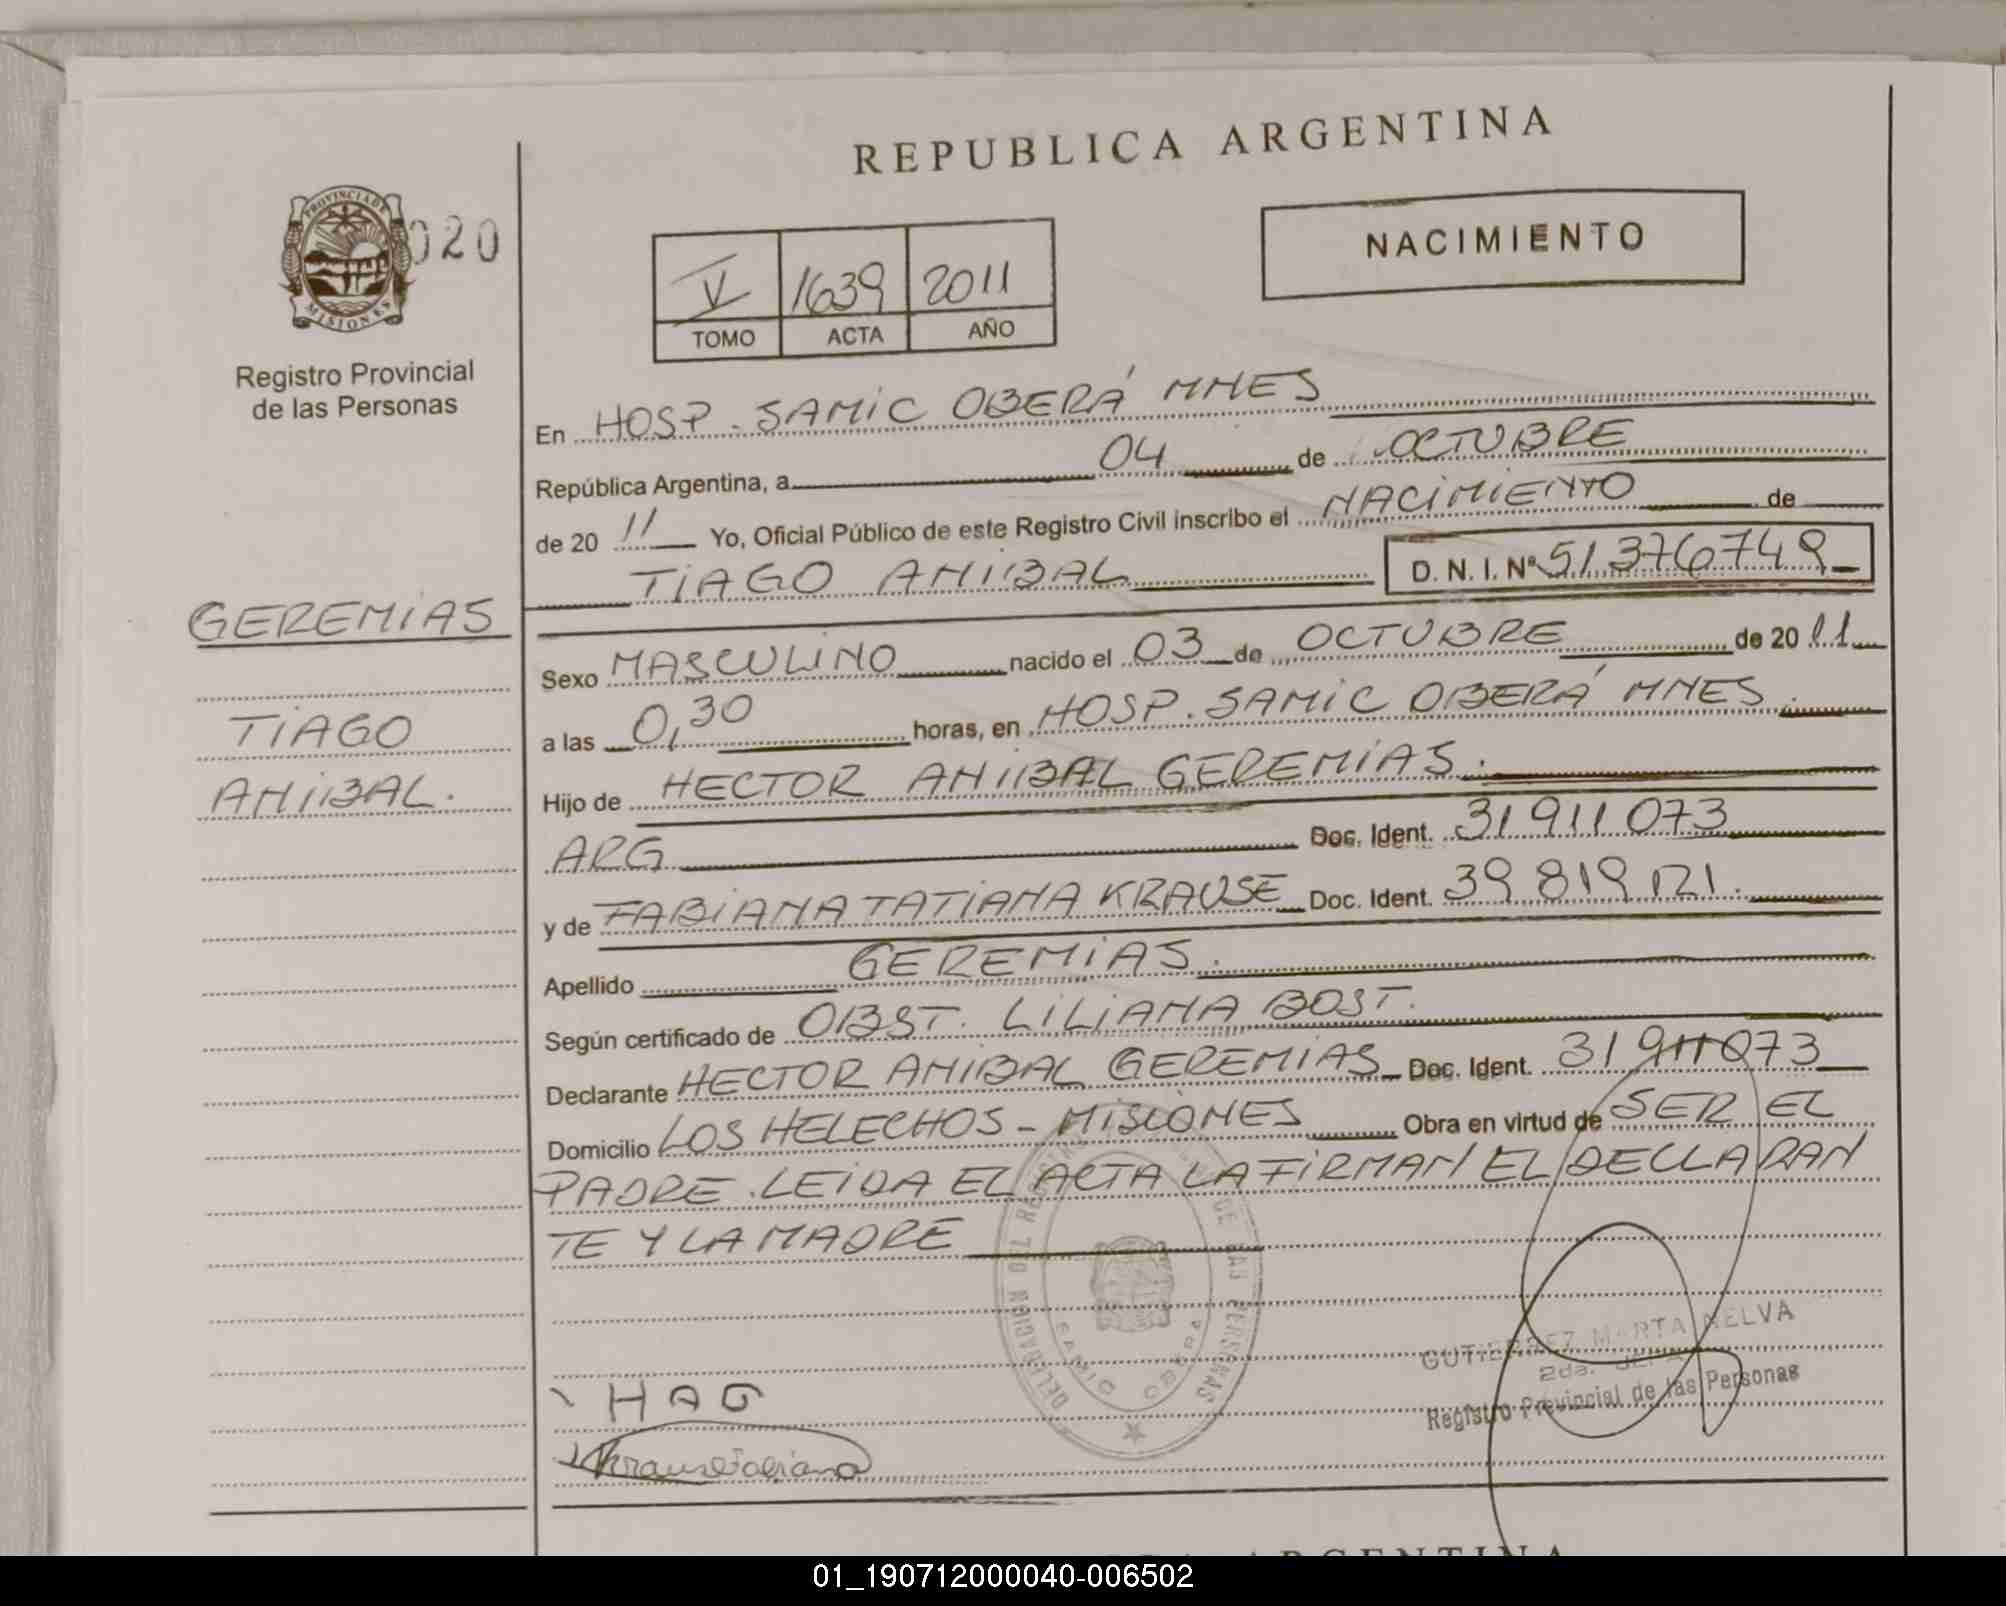 REPUBLICA ARGENTINA
PROVINCIA DE
MISIONES
020
NACIMIENTO
V 1639 2011
TOMO ACTA AÑO
Registro Provincial
de las Personas
En HOSP. SAMIC OBERÁ MNES
República Argentina, a 04 de OCTUBRE
de 20 11 Yo, Oficial Público de este Registro Civil inscribo el NACIMIENTO de
TIAGO ANIBAL D. N. I. Nº 51376749
GEREMIAS
TIAGO
ANIBAL.
Sexo MASCULINO nacido el 03 de OCTUBRE de 20 11
a las 0,30 horas, en HOSP. SAMIC OBERÁ MNES.
Hijo de HECTOR ANIBAL GEREMIAS.
ARG Doc. Ident. 31911073
y de FABIANA TATIANA KRAUSE Doc. Ident. 39819121.
Apellido GEREMIAS.
Según certificado de OBST. LILIANA BOST.
Declarante HECTOR ANIBAL GEREMIAS Doc. Ident. 31911073
Domicilio LOS HELECHOS - MISIONES Obra en virtud de SER EL
PADRE. LEIDA EL ACTA LA FIRMAN EL DECLARAN
TE Y LA MADRE
DE LAS PERSONAS
SAMIC OBERA
GUTIERREZ MARTA NELVA
2da. JEFA
Registro Provincial de las Personas
HAG
Krause Fabiana
ARGENTINA
01_190712000040-006502